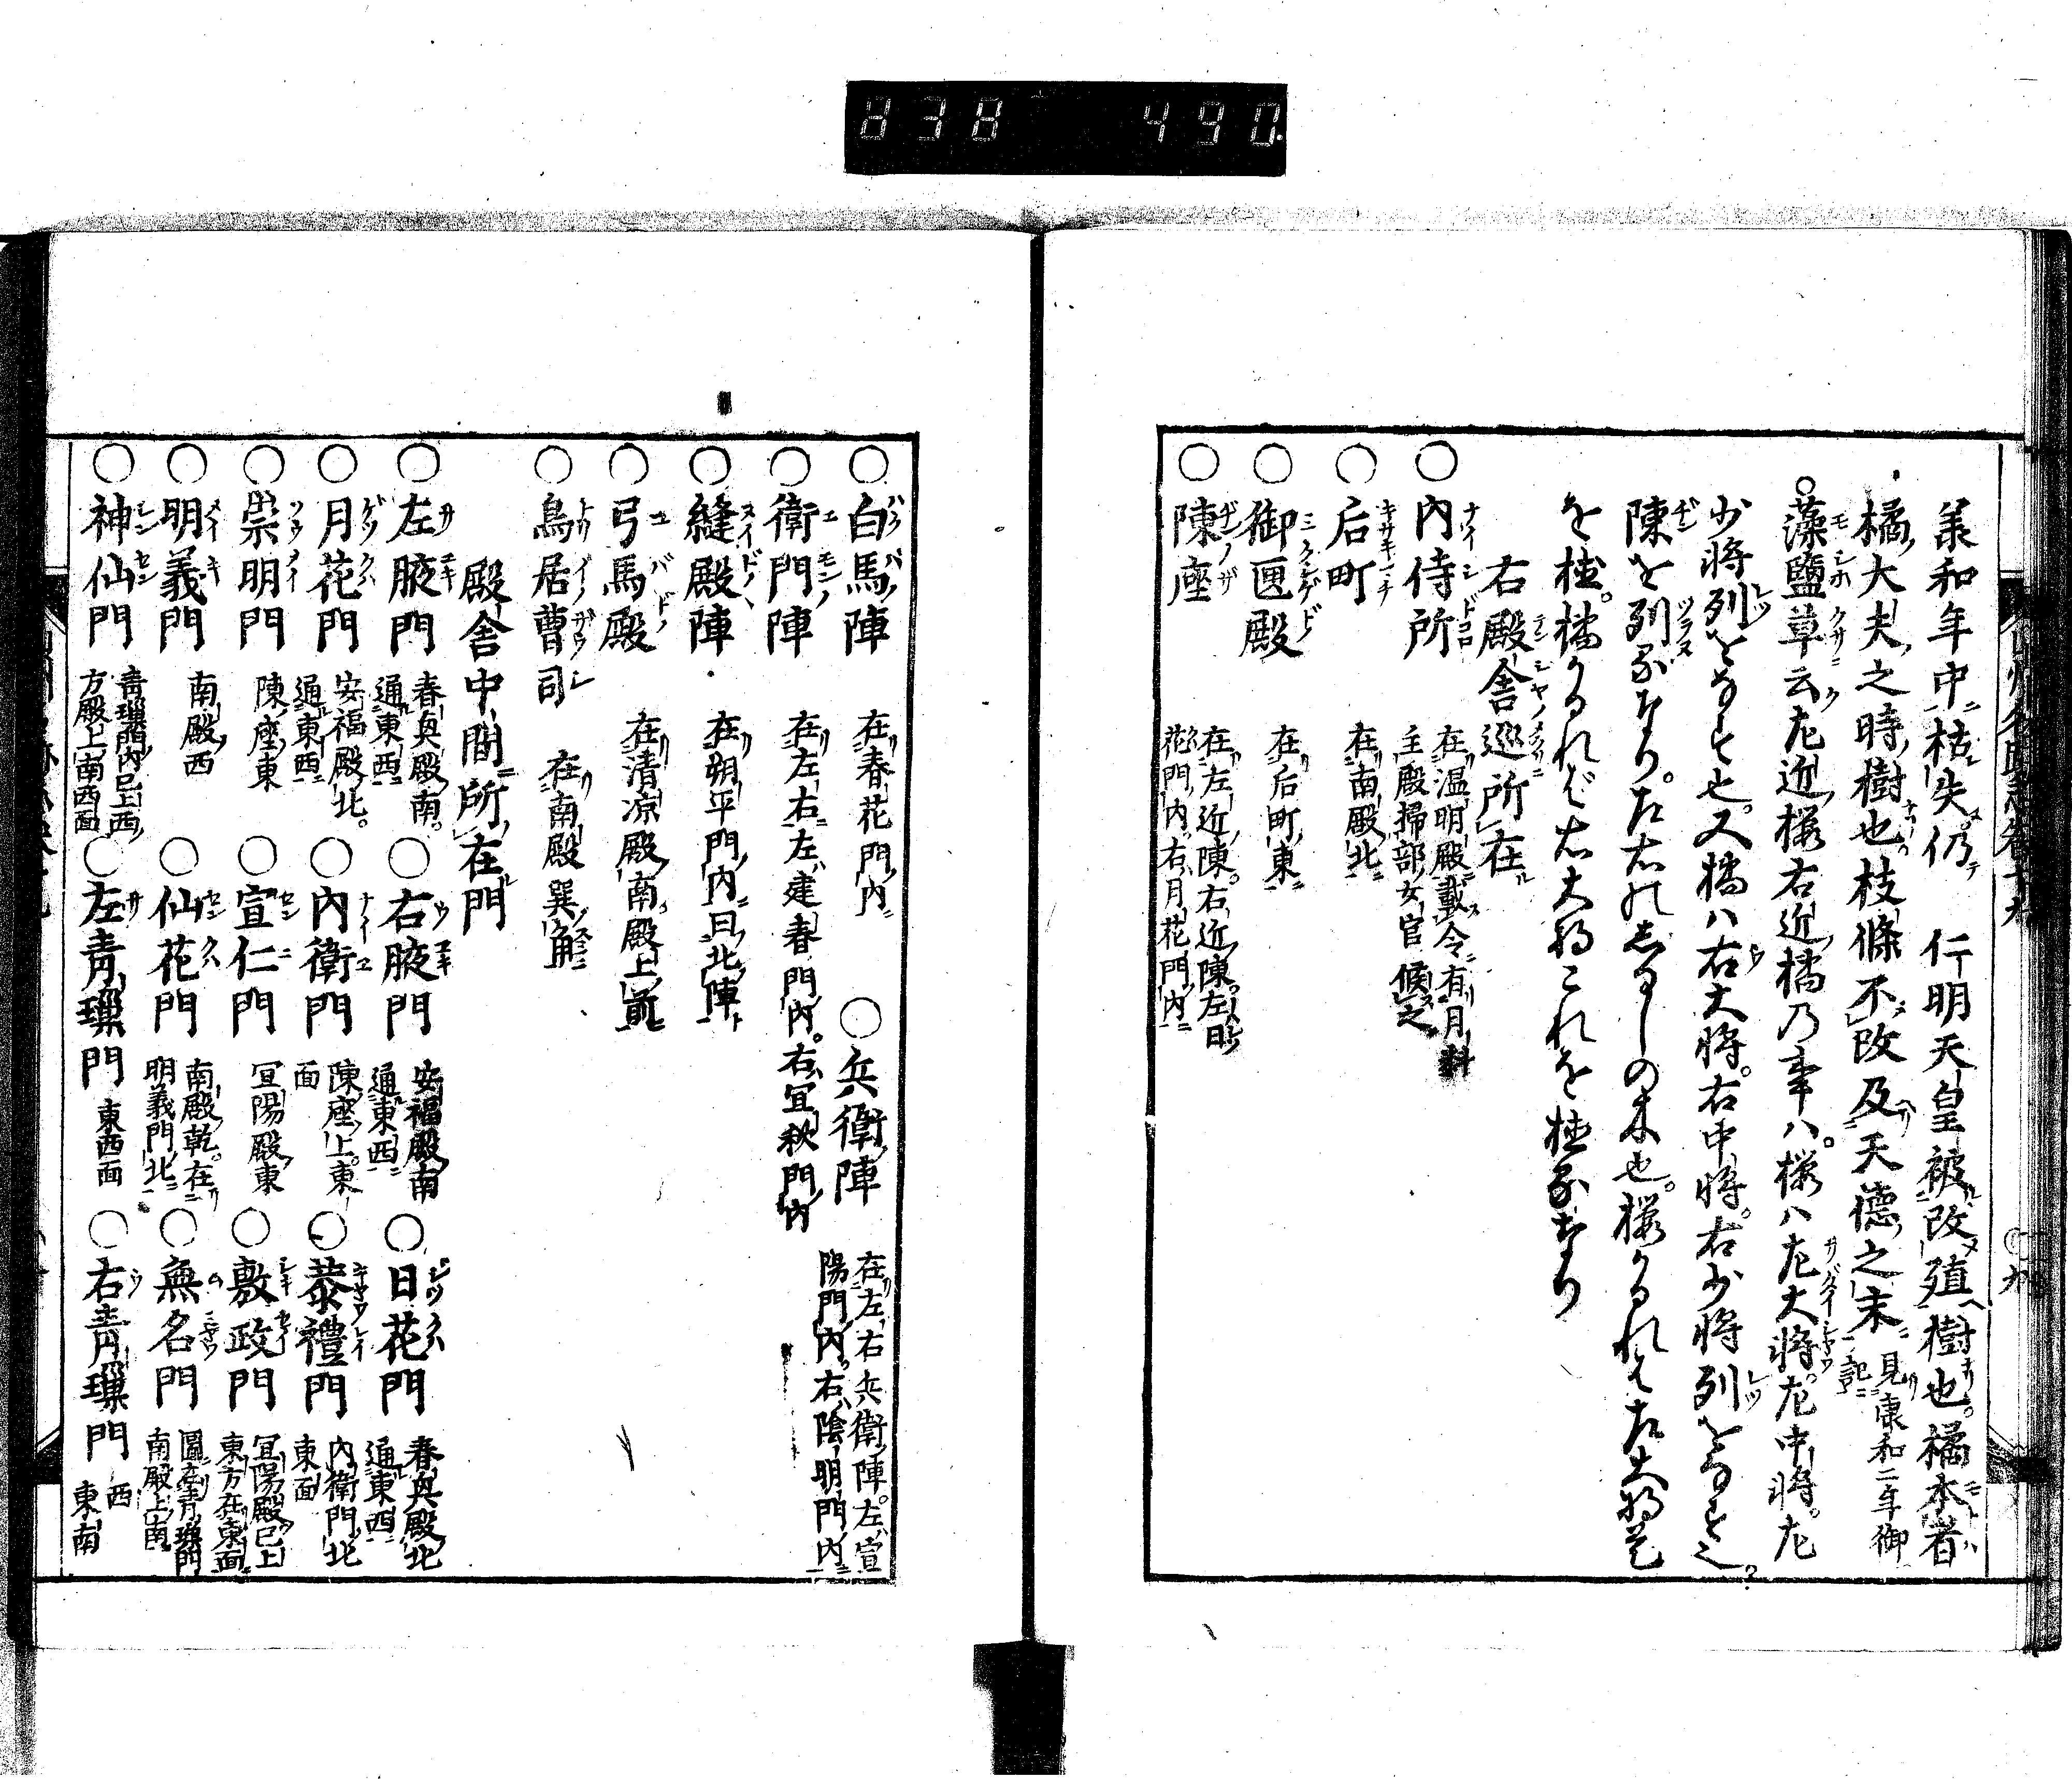 羕和年中ニ枯失ヌ仍テ 仁明天皇被改殖樹也。橘本者
橘大夫之時樹也。枝條不改及天德之末ニ 見康和二年御
記ニ
○藻鹽草云左近櫻右近橘乃事ハ。櫻ハ左大將。左中將。左
少將列をなす也。又橘ハ右大將。右中將。右少將列をなす也
陳を列るなり。左右のしるしの木也。櫻かるれて左大將是
を植。橘かるれバ右大將これを植るなり
右殿舍巡所在
○內侍所 在溫明殿ニ載令ニ有月料
主殿掃部女官候之
○后町 在南殿北
○御匣殿 在后町東
○陳座 在左近陳。右近陳。左日
花門內。右月花門內
○白馬陣 在春花門內 ○兵衛陣 在左右兵衛陣。左ハ宣
陽門內。右陰明門內
○衛門陣 在左右左ハ建春門內。右宜秋門內
○縫殿陣 在朔平門內曰北陣
○弓馬殿 在清凉殿南殿上前
○鳥居曹司 在南殿巽角
殿舍中間所在門
○左腋門 春與殿南。
通東西 ○右腋門 安福殿南
通東西 ○日花門 春與殿北
通東西
○月花門 安福殿北。
通東西 ○內衛門 陳座上。東
面 ○恭禮門 內衛門北
東面
○崇明門 陳座東 ○宣仁門 宜陽殿東 ○敷政門 宜陽殿巳上
東方在東面
○明義門 南殿西 ○仙花門 南殿乾。在
明義門北 ○無名門 圖在青璅門
南殿上南
○神仙門 青璅門內巳上西
方殿上南西面 ○左青璅門 東西面 ○右青璅門 西
東南